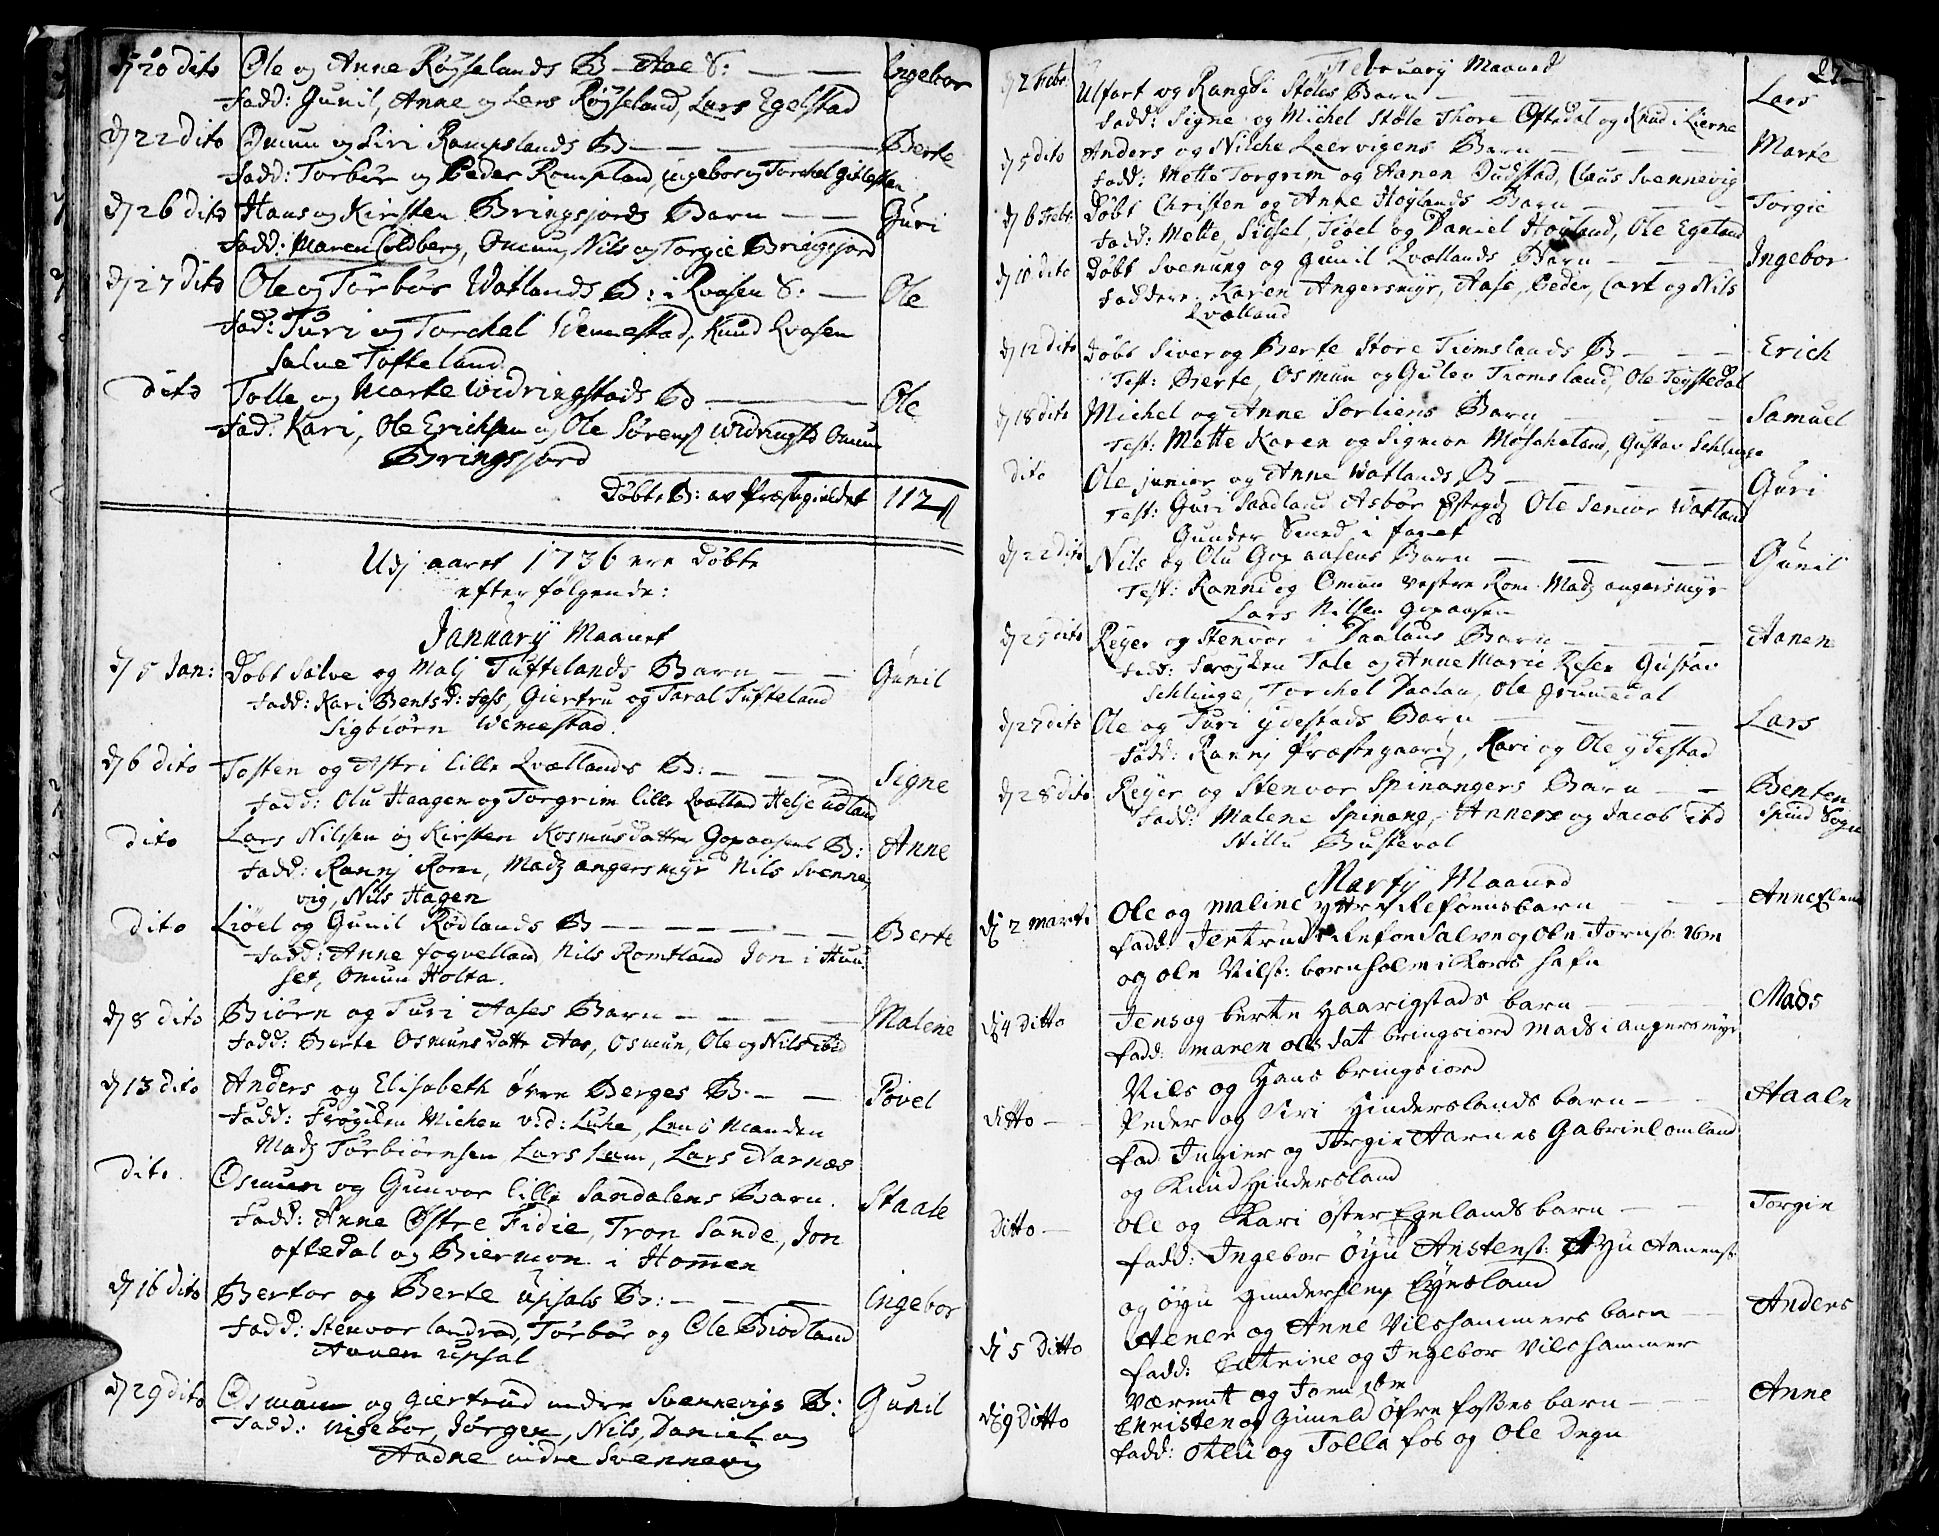 dj 20 dito Ole og Anne Røyselands B - Aae S: Ingebor
Fadd: Gunil, Anne og Lars Røyseland, Lars Egelstad
dj 22 dito Omun og Siri Rompslands B Berte
Fadd: Torbør og Peder Rompland, ingebor og Torchel
dj 26 dito Hans og Kirsten Bringsjords Barn Guri
Fadd: Maren Coldberg, Omun, Nils og Torgie Bringsjord
dj 27 dito Ole og Torbør Watlands B: i Qvasen S. Ole
Fad: Turi og Torchel Vemestad, Knud Qvasen
Salve Tofteland
dito Tolle og Marte Widringstads B Ole
Fad: Kari, Ole Erichsen og Ole Sørens Widringst Omun
Bringsjord
Døbte B: av Præstegieldet 112
Udj aaret 1736 ere Døbte
efterfølgende:
Januarij Maanet
dj 5 Jan: Døbt Salve og Malj Tuftelands Barn Gunil
Fadd: Kari Bentsd: Foss, Giertru og Taral Tufteland
Sigbiørn Wemestad.
dj 6 dito Tosten og Astri lille Qvællands B: Signe
Fadd: Olu Haagen og Torgrim lille Qvælland Helje udland
dito Lars Nilssen og Kirsten Rasmusdatter Gopaasens B: Anne
Fadd: Rannj Rom, Madz angersmyr Nils Svenne
vig, Nils Hagen
dito Liøel og Gunil Rødlands B Berte
Fadd: Anne fogvelland Nils Romtland Jon i Huu
set, Omun Holta.
dj 8 dito Biørn og Turi Aases Barn Malene
Fadd: Berte Osmunsdatte Aas, Osmun, Ole og Nils ibid
dj 13 dito Anders og Elisabeth øvre Berges B. Povel
Fadd: Frøgden Michen vid: Luhe, Lens Manden
Madz Torbiørnsen Lars Lum, Lars Narnæs
dito Osmun og Gunvor lille Sandalens Barn. Staale
Fadd: Anne Østre Fidie, Tron Sande, Jon
oftedal og Biermon i Homen
dj 16 dito Bertor og Berte Upsals B: Ingebor
Fadd: Stenvor landrad, Torbør og Ole Biodland
Aanen upsal
dj 29 dito Osmun og giertrud indre Svennevigs B: Gunil
Fadd: ingebor, Jørgen, Nils, Daniel og
Aadne indre Svennevig
27
February Maaned
dj 2 Febr. Ulfart og Rangdi Støles Barn Lars
Fadd: Signe og Michel Støle Thore Oftedal og Knud i Lierne
dj 5 dito Anders og Nilche Leervigens Barn Marte
Fadd: Mette Torgrim og Aanen Judstad, Claus Svennevig
dj 6 Febr. Døbt Christen og Anne Høylands Barn Torgie
Fadd: Mette, Sidsel, Tiøel og Daniel Høyland, Ole Egeland
dj 10 dito Døbt Svenung og gunil Qvællands Barn Ingebor
Faddere Karen Angersmyr, Aase, Peder, Carl og Nils
Qvælland
dj 12 dito Døbt Siver og Berte Store Tiomslands B Erich
Test: Berte, Osmun og Gulev Tiomsland, Ole Tøystedal
dj 18 dito Michel og Anne Sorliens Barn Samuel
Test: Mette Karen og Sigmon Møsakeland, Gustav Schlinge
dito Ole junior og Anne Watlands B Guri
Test: Guri Saadland Asbør Ole Senior Watland
Gunder Smed i
dj 22 dito Nils og Olu Gopaasens Barn Gunil
Test: Ranni og Omun vestre Rom Madz angersmyr
Lars Nilssen Gopaasen
dj 25 dito Reyer og Stenvor i Daalans Barn Aanen
Fadd: Frøyken Tale og Anne Marie Reser Gustav
Schlinge, Torchel Daalan, Ole Grummedal
dj 27 dito Ole og Turi ydestads Barn Lars
Fadd: Rannj Præstegaard, Kari og Ole ydestad
dj 28 dito Reyer og Stenvor Spinangers Barn Benten
Spind Sogn
Fadd: Malene Spinang, Anners og Jacob ibd
Stille Busteval
Martij Maaned
dj 2 marti Ole og maline yttre Refsnes barn Anne Elene
fadd: Jertrud Refsne Salve og Ole Jornss: ibm
og ole Nilss: bornholm i Kors hafn
dj 4 ditto Jens og berte Haarigstads barn Mads
fadd: maren olsdat bringsiord mads i angersmyr
Nils og Hans bringsiord
ditto Peder og Siri Hinderslands barn Haale
fad Ingier og Torgie Aarnes Gabriel omland
og Knud Hindersland
ditto ole og Kari øster Egelands barn Torgie
fadd: Ingebor Øyu Anstenst: Øyu Aanenst:
og øyu gundersen Eynsland
dj 5 ditto Aener og Anne Nilshammers barn Anders
fadd: Catrine og Ingebor Nilshammer
Væremt og Jonn ibm
dj 9 ditto Christen og Guneld øfre fosses barn Anne
fadd: Alu og Tolla fos og ole Degn